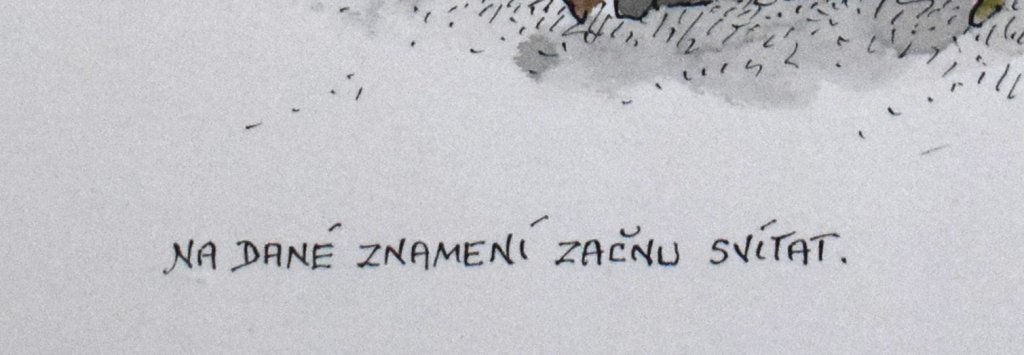 NA DANÉ ZNAMENÍ ZAČNU SVÍTAT.